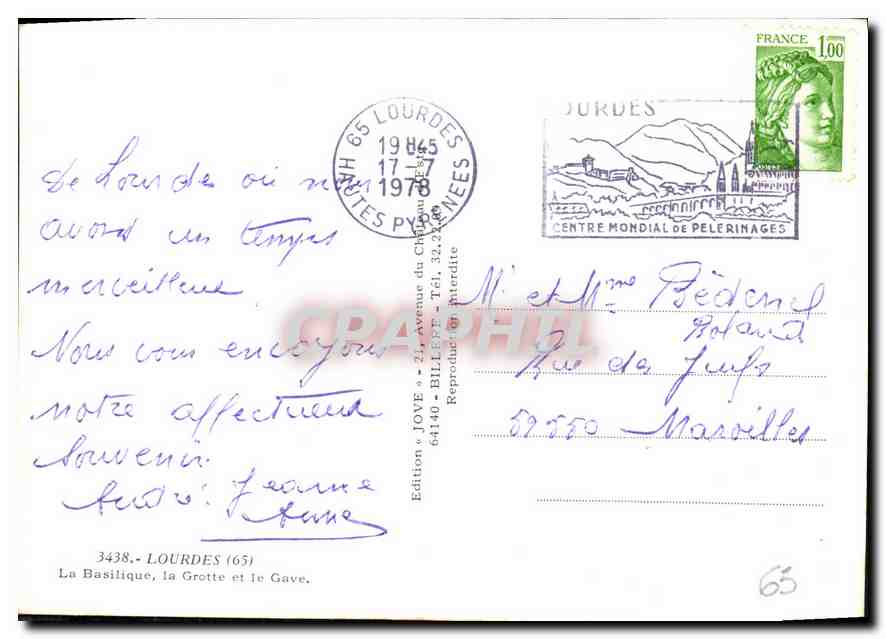 De Lourdes où nous
avons un temps
merveilleux
Nous vous envoyons
notre affectueux
souvenir.
André. Jeanne
Anne
3438.- LOURDES (65)
La Basilique, la Grotte et le Gave.
65 LOURDES
19H45
17-7
1978
HAUTES PYRENEES
Edition « JOVE » - 21, Avenue du Château d'Este
64140 - BILLERE - Tél. 32.22
Reproduction interdite
CRAPHIL
LOURDES
CENTRE MONDIAL DE PELERINAGES
FRANCE 1,00
POSTES
M. et Mme Bédenel
Roland
Rue des Juifs
59550 Maroilles
63